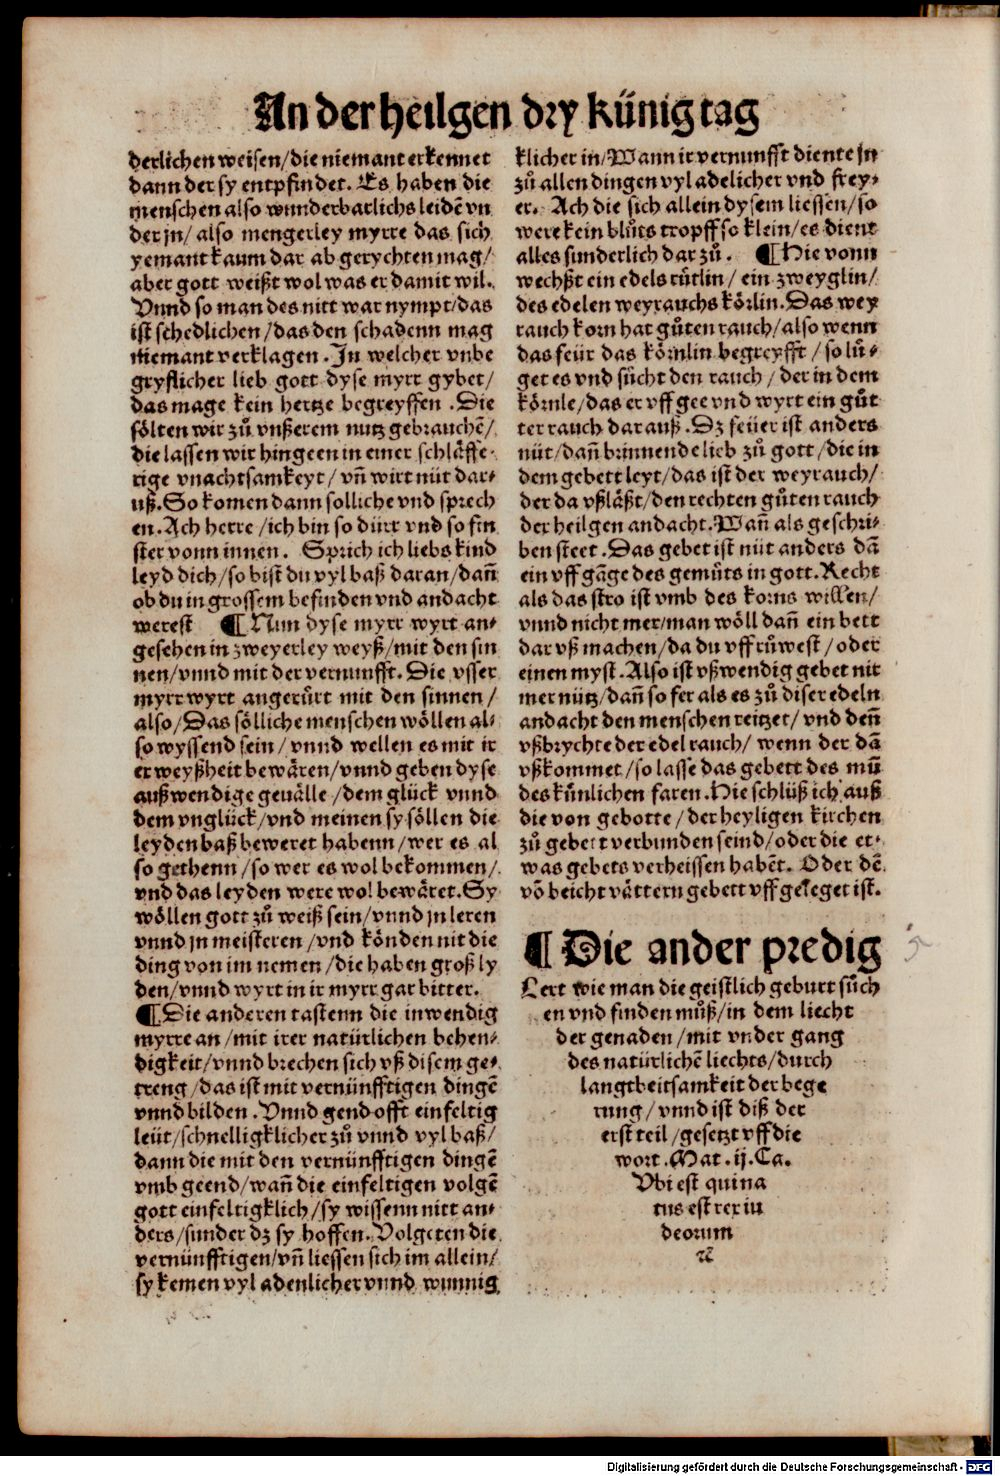 An der heilgen dry künig tag
derlichen weisen/die niemant erkennet
dann der sy entpfindet. Es haben die
menschen also wunderbarlichs leidē vn
der jn/ also mengerley myrre das sich
yemant kaum dar ab gerychten mag/
aber gott weißt wol was er damit wil.
Vnnd so man des nitt war nympt/das
ist schedlichen/das den schadenn mag
niemant verklagen. In welcher vnbe
gryflicher lieb gott dyse myrr gybet/
das mage kein hertze begreyffen. Die
sölten wir zů vnßerem nutz gebrauchē/
die lassen wir hingeen in einer schläffe-
rige vnachtsamkeyt/ vñ wirt nüt dar-
uß. So komen dann solliche vnd sprech
en. Ach herre/ich bin so dürr vnd so fin
ster vonn innen. Sprich ich liebs kind
leyd dich/so bist du vyl baß daran/dañ
ob du in grossem befinden vnd andacht
werest ¶ Nun dyse myrr wyrt an-
gesehen in zweyerley weyß/mit den sin
nen/vnnd mit der vernunfft. Die vsser
myrr wyrt angerürt mit den sinnen/
also/Das sölliche menschen wöllen al-
so wyssend sein/vnnd wellen es mit ir
er weyßheit bewären/vnnd geben dyse
außwendige geuälle/dem glück vnnd
dem vnglück/vnd meinen sy söllen die
leyden baß beweret habenn/wer es al
so gethenn/so wer es wol bekommen/
vnd das leyden were wol bewäret. Sy
wöllen gott zů weiß sein/vnnd jn leren
vnnd jn meisteren/vnd könden nit die
ding von im nemen/die haben groß ly
den/vnnd wyrt in ir myrr gar bitter.
¶Die anderen tastenn die inwendig
myrre an/mit irer natürlichen behen-
digkeit/vnnd brechen sich vß disem ge-
treng/das ist mit vernünfftigen dingē
vnnd bilden. Vnnd gend offt einfeltig
leüt/schnelligklicher zů vnnd vyl baß/
dann die mit den vernünfftigen dingē
vmb geend/wañ die einfeltigen volgē
gott einfeltigklich/sy wissenn nitt an-
ders/sunder dz sy hoffen. Volgeten die
vernünfftigen/vñ liessen sich im allein/
sy kemen vyl adenlicher vnnd wunnig
klicher in/Wann ir vernunfft diente jn
zů allen dingen vyl adelicher vnd frey-
er. Ach die sich allein dysem liessen/so
were kein blůts tropff so klein/es dient
alles sunderlich dar zů. ¶Hie vonn
wechßt ein edels rütlin/ ein zweyglin/
des edelen weyrauchs körlin. Das wey
rauch korn hat gůten rauch/also wenn
das feür das körnlin begreyfft/so lů-
get es vnd sůcht den rauch/der in dem
körnle/das er vff gee vnd wyrt ein gůt
ter rauch dar auß. Dz feüer ist anders
nüt/dañ brinnende lieb zů gott/die in
dem gebett leyt/das ist der weyrauch/
der da vßläßt/den rechten gůten rauch
der heilgen andacht. Wañ als geschri-
ben steet. Das gebet ist nüt anders dā
ein vff gāge des gemüts in gott. Recht
als das stro ist vmb des korns willen/
vnnd nicht mer/man wöll dañ ein bett
dar vß machen/da du vff růwest/oder
einen myst. Also ist vßwendig gebet nit
mer nütz/dañ so fer als es zů diser edeln
andacht den menschen reitzet/vnd deñ
vßbrychte der edel rauch/ wenn der dā
vßkommet/so lasse das gebett des mū
des künlichen faren. Hie schlüß ich auß
die von gebotte/der heyligen kirchen
zů gebett verbunden seind/oder die et-
was gebets verheissen habēt. Oder dē
vō beicht vättern gebett vff geleget ist.
¶ Die ander predig
Lert wie man die geistlich geburt sůch
en vnd finden můß/in dem liecht
der genaden/mit vnder gang
des natürlichē liechts/durch
langtbeitsamkeit der bege
rung/vnnd ist diß der
erst teil/gesetzt vff die
wort. Mat. ij. Ca.
Vbi est qui na
tus est rex iu
deorum
ꝛc̄
Digitalisierung gefördert durch die Deutsche Forschungsgemeinschaft - DFG